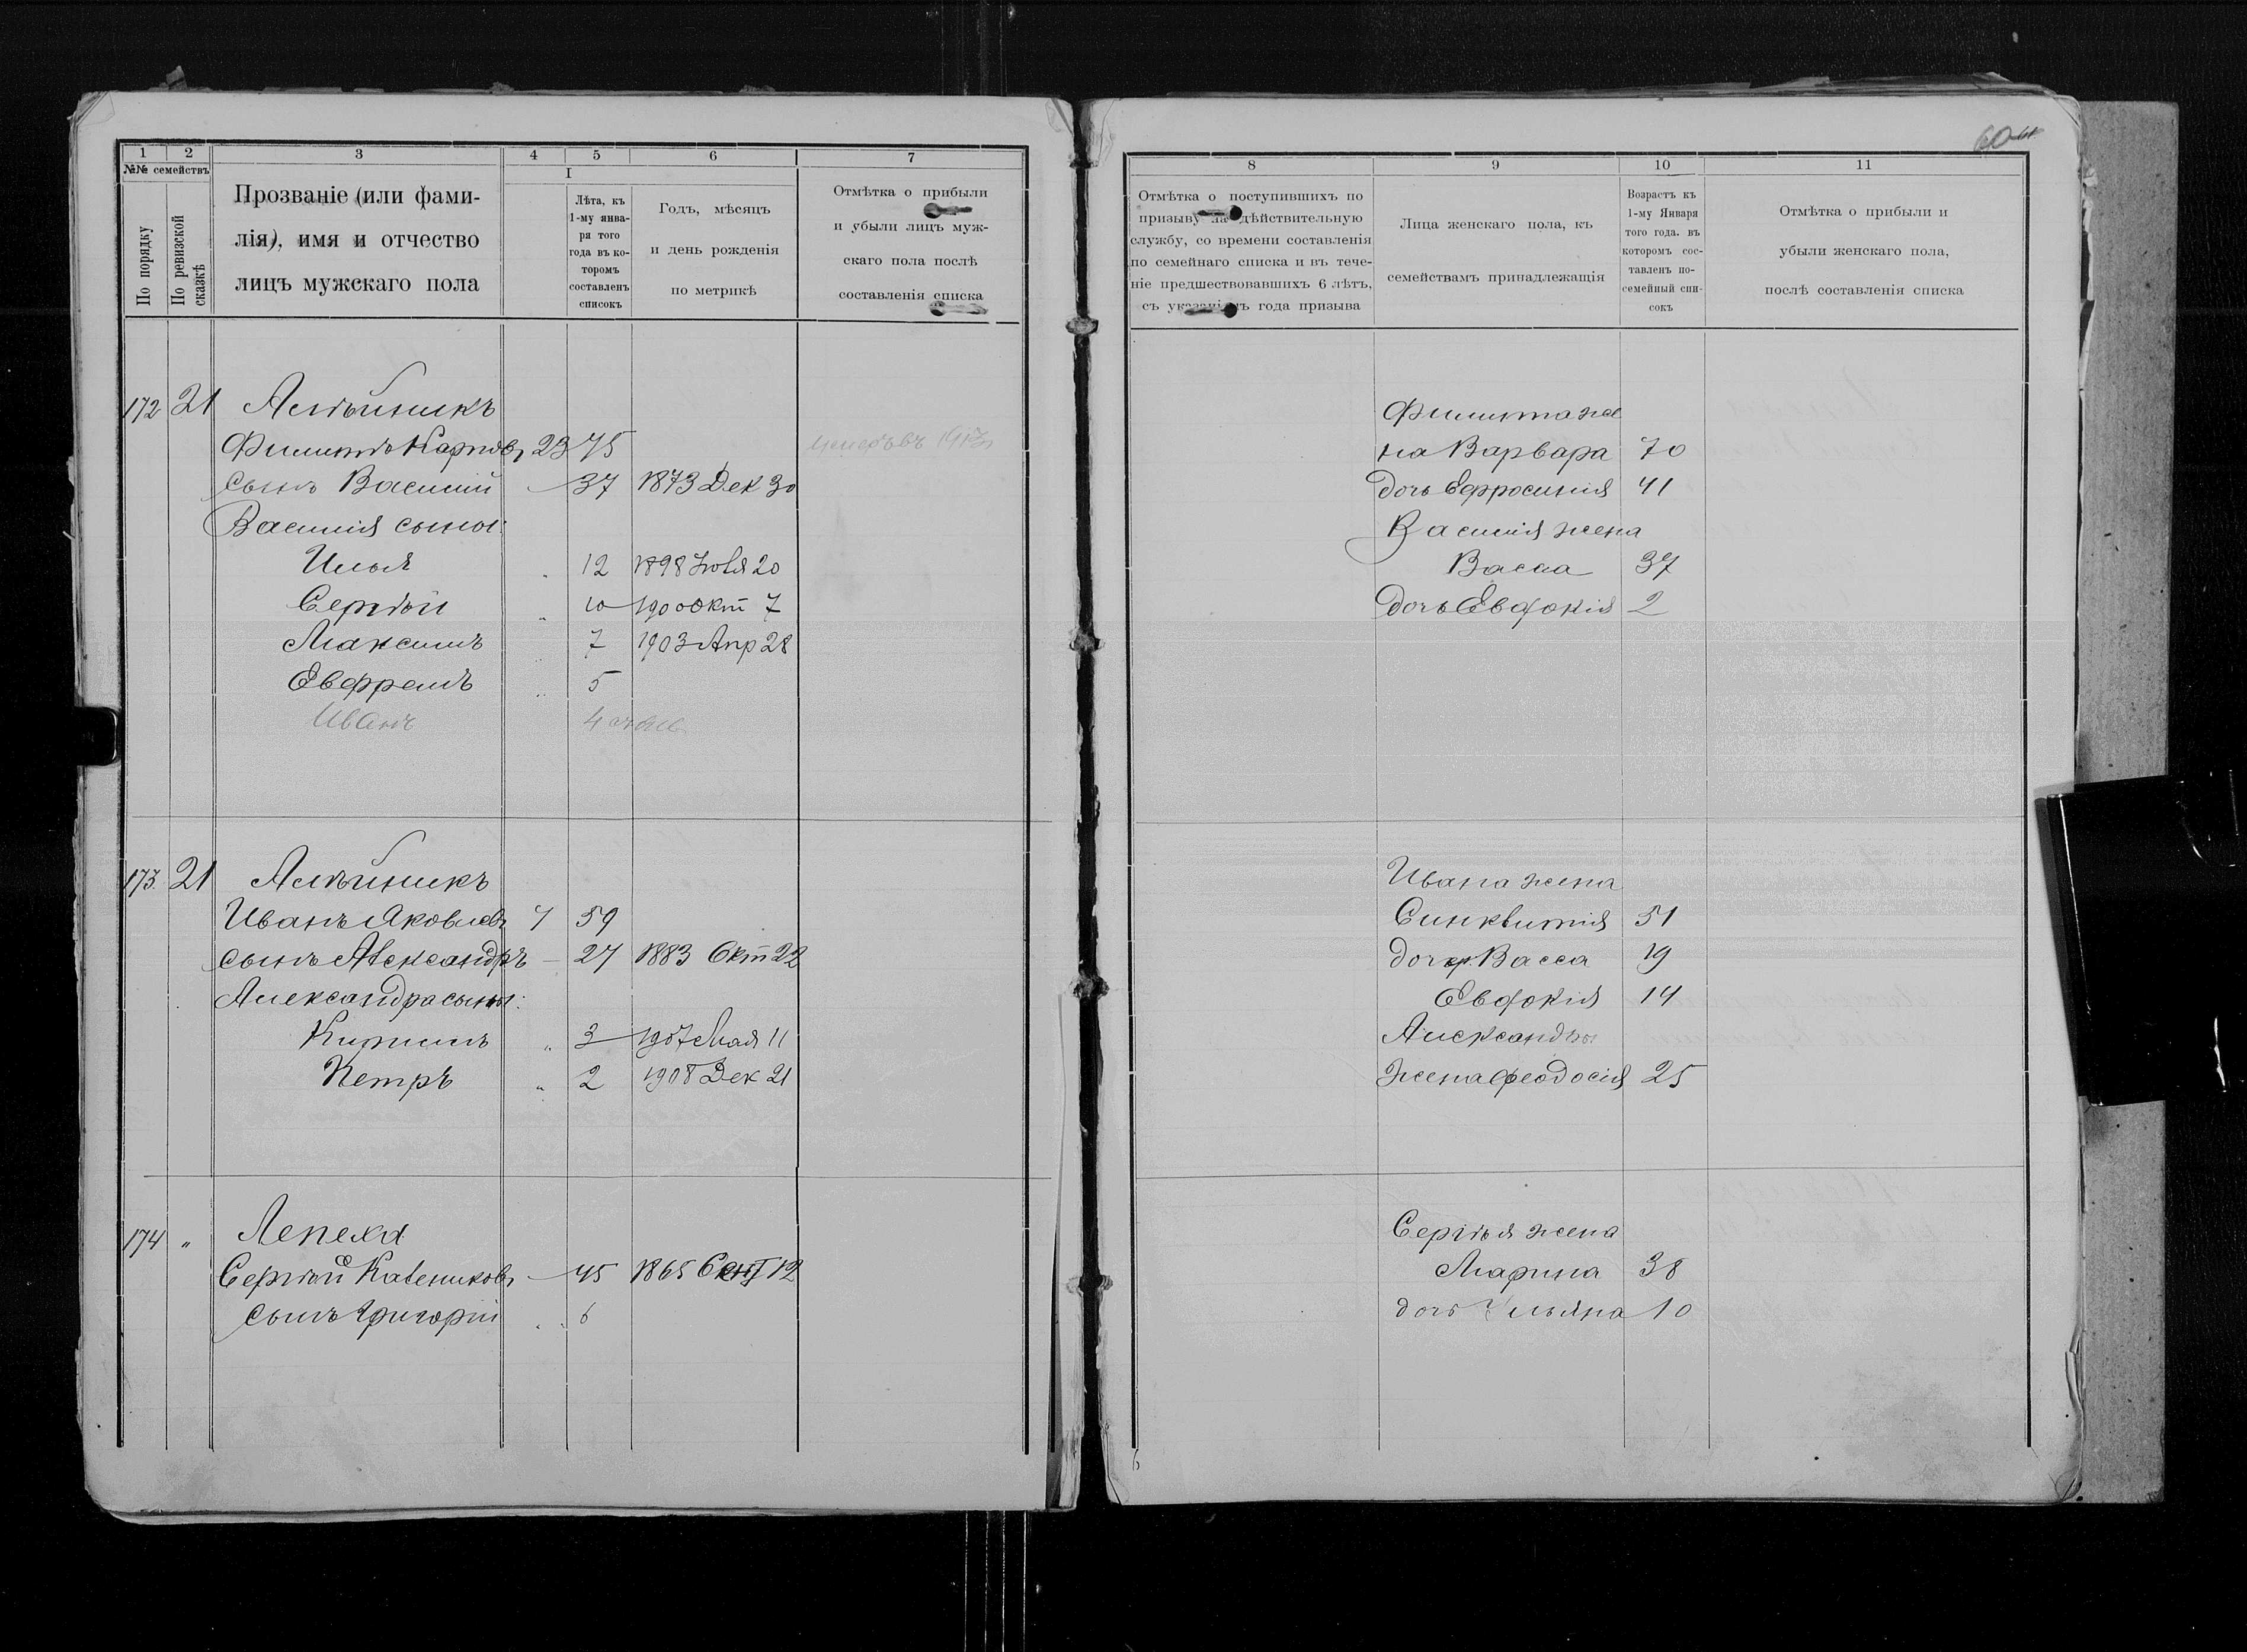 1 2 3 4 5 6 7
№№ семействъ
По порядку
По ревизской сказкѣ
Прозваніе (или фами-
лія), имя и отчество
лицъ мужскаго пола
I
Лѣта, къ
1-му янва-
ря того
года въ ко-
торомъ
составленъ
списокъ
Годъ, мѣсяцъ
и день рожденія
по метрикѣ
Отмѣтка о прибыли
и убыли лицъ муж-
скаго пола послѣ
составленія списка
172 21 Алѣйникъ
Филиппъ Карповъ 23 75
сынъ Василій - 37 1873 Дек 30
Василія сыны:
Илья " 12 1898 Іюля 20
Сергѣй " 10 1900 Окт 7
Максимъ " 7 1903 Апр 28
Евфремъ " 5
Иванъ 4
173. 21 Алѣйникъ
Иванъ Яковлевъ 7 59
сынъ Александръ - 27 1883 Окт 22
Александра сыны:
" 3 1907 Мая 11
Петръ " 2 1908 Дек 21
174 " Лепеха
Сергѣй - 45 1865 12
сынъ Григорій " " 6
60
8 9 10 11
Отмѣтка о поступившихъ по
призыву на дѣйствительную
службу, со времени составленія
по семейнаго списка и въ тече-
ніе предшествовавшихъ 6 лѣтъ,
съ указаніемъ года призыва
Лица женскаго пола, къ
семействамъ принадлежащія
Возрастъ къ
1-му Января
того года. въ
которомъ сос-
тавленъ по-
семейный спи-
сокъ
Отмѣтка о прибыли и
убыли женскаго пола,
послѣ составленія списка
Филиппа же
на Варвара 70
дочь Ефросинія 41
Василія жена
Васса 37
дочь Евдокія 2
Ивана жена
Синклитія 51
Васса 19
Евдокія 14
Александра
жена Феодосія 25
Сергѣя жена
Марина 38
дочь Ульяна 10